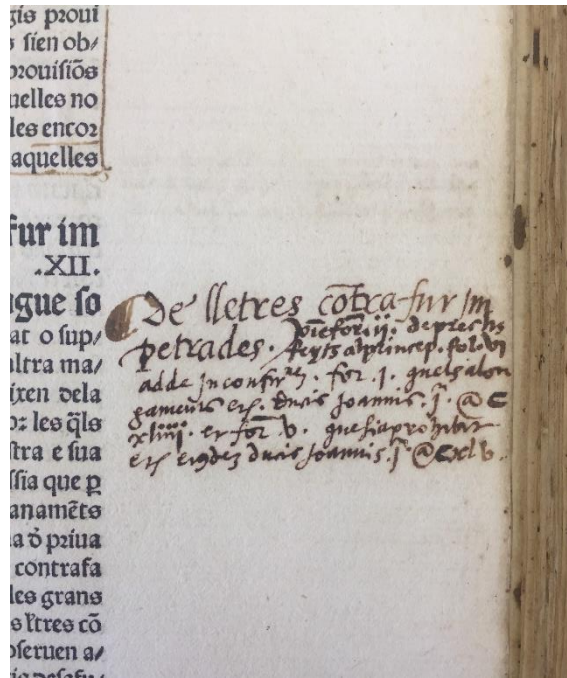 gis proui
s sien ob/
prouisiōs
uelles no
les encor
aquelles
fur im
.XII.
gue so
at o sup/
altra ma/
ixen dela
o: les q̄ls
stra e sua
ssia que p
anamēts
a d̄ priua
contrafa
les grans
s l̄tres cō
oseruen a/
De lletres cōtra fur Im
petrades. vīe for. ij. de prechs
feyts al princep. fol. vi
adde In confir . for. j. quels alon
gaments Joannis. j. @ C
xliiij. et for. v. que sia prohibit
ducis Joannis. j. @ Cxlv.